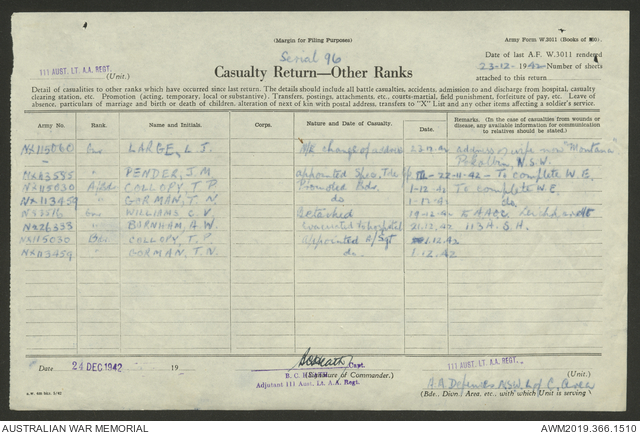 (Margin for Filing Purposes)
Army Form W.3011 (Books of 100).
Serial 96
Date of last A.F. W.3011 rendered
111 AUST. LT. A.A. REGT.
(Unit.)
23-12-1942 Number of sheets
attached to this return
Casualty Return—Other Ranks
Detail of casualties to other ranks which have occurred since last return. The details should include all battle casualties, accidents, admission to and discharge from hospital, casualty
clearing station, etc. Promotion (acting, temporary, local or substantive). Transfers, postings, attachments, etc., courts-martial, field punishment, forfeiture of pay, etc. Leave of
absence, particulars of marriage and birth or death of children, alteration of next of kin with postal address, transfers to "X" List and any other items affecting a soldier's service.
Army No. Rank. Name and Initials. Corps. Nature and Date of Casualty. Date. Remarks. (In the case of casualties from wounds or
disease, any available information for communication
to relatives should be stated.)
Gnr LARGE, L J. change of address address wife now "Montana"
Pokolbin, N.S.W.
PENDER, J.M appointed 22-11-42 To complete W.E.
NX115030 COLLOPY, T.P. Promoted Bdr. 1-12-42 To complete W.E.
NX113459 GORMAN, T.N. do 1-12-42 do.
Gnr WILLIAMS C.V. Detached 19-12-42 to
BARNHAM, A.W. Evacuated to hospital 21.12.42 113 A.G.H.
NX115030 Bdr. COLLOPY, T.P. appointed A/Sgt 1.12.42
NX113459 GORMAN, T.N. do. 1.12.42
Date 24 DEC 1942 19
Capt.
B. C. HEATH
(Signature of Commander.)
Adjutant 111 Aust. Lt. A.A. Regt.
111 AUST. LT. A.A. REGT.
(Unit.)
A A Defences NSW L of C. Area
(Bde., Divn., Area, etc., with which Unit is serving
AUSTRALIAN WAR MEMORIAL
AWM2019.366.1510